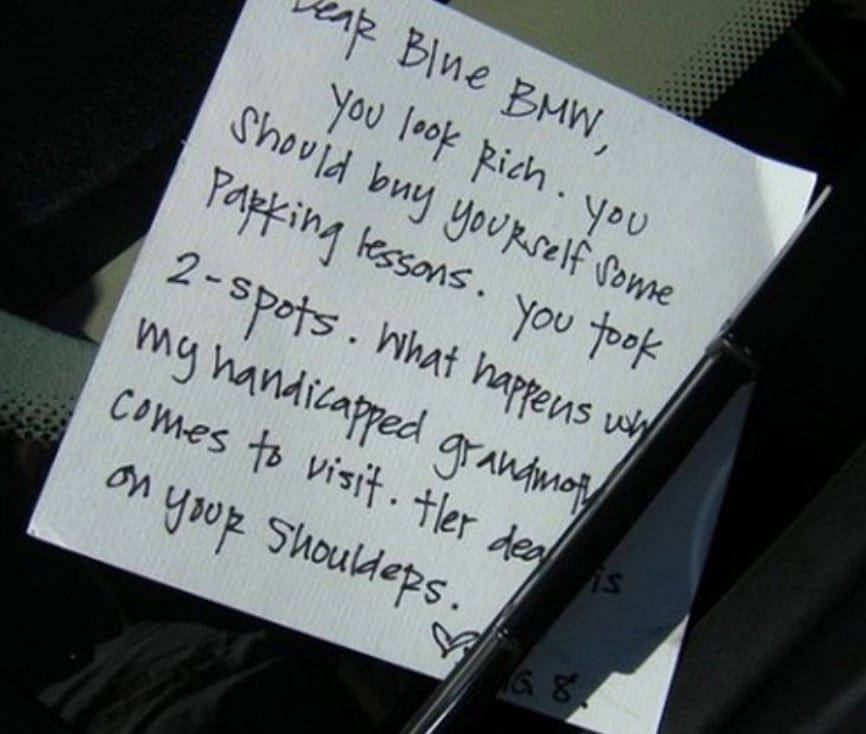 Dear Blue BMW,
You look Rich. You
should buy yourself some
Parking lessons. You took
2-spots. What happens wh
my handicapped grandmoth
comes to visit. Her dea is
on your shoulders.
G 8.